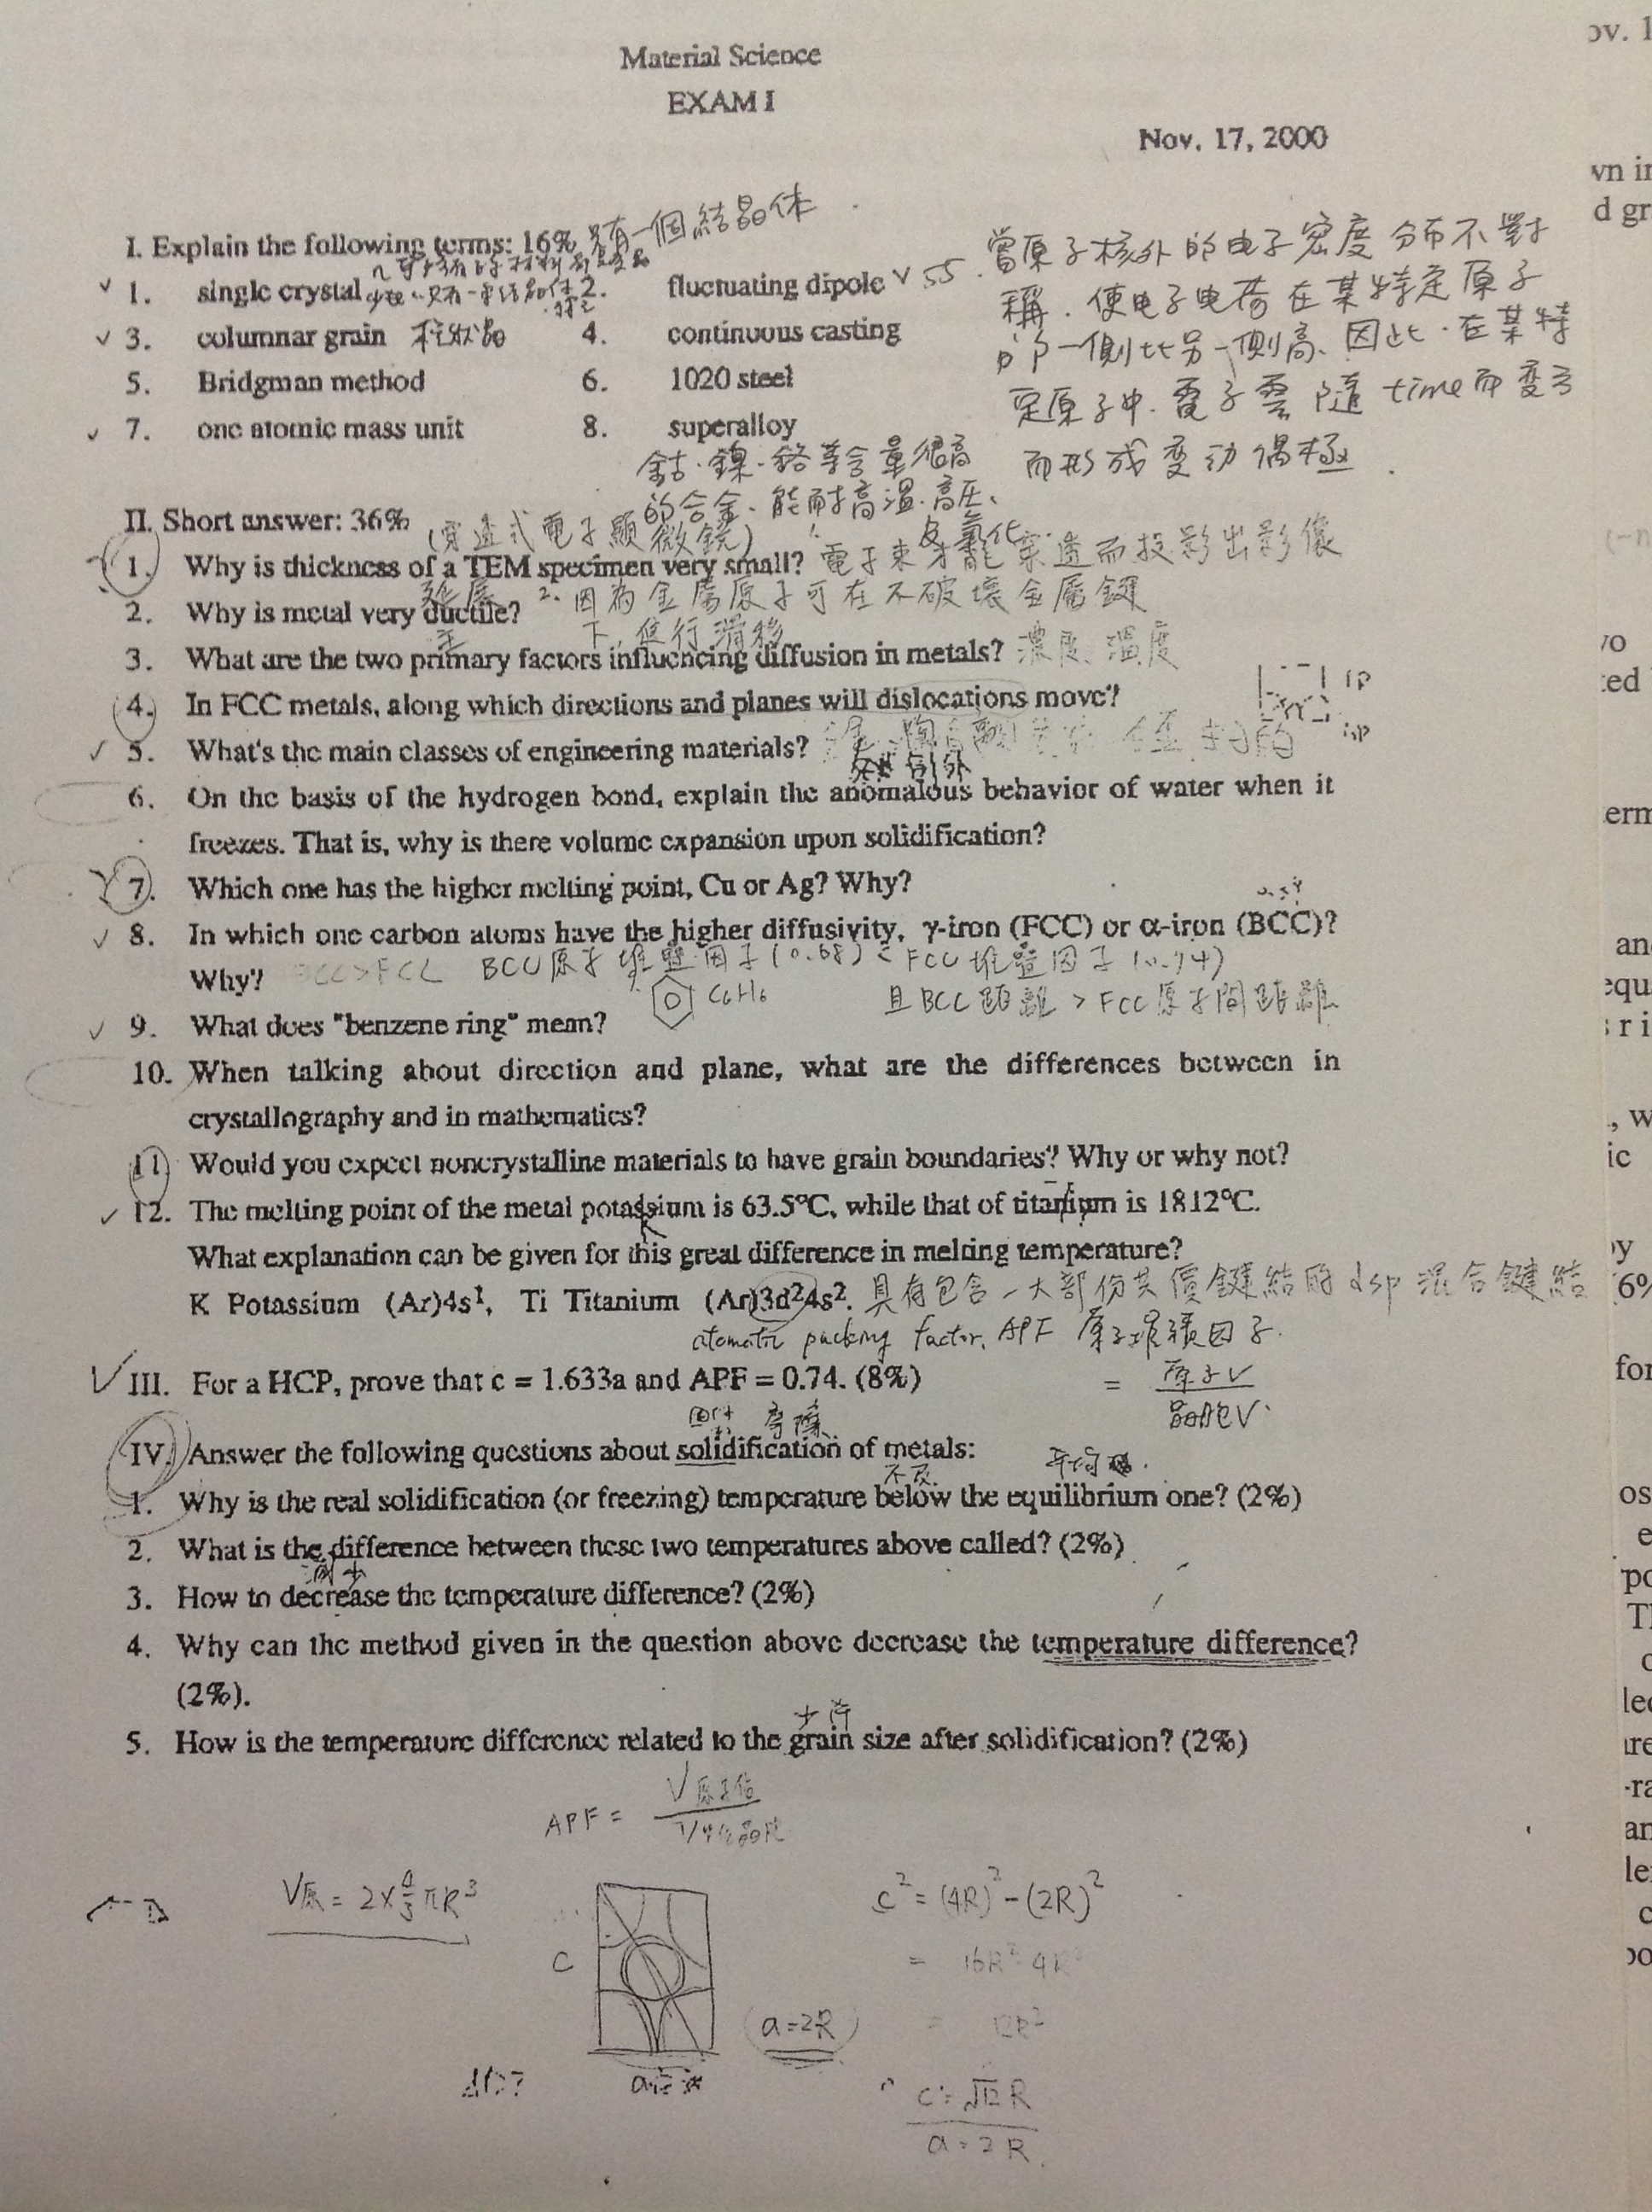 Material Science
EXAM I
Nov. 17, 2000
I. Explain the following terms: 16% 只有一個結晶体
1. single crystal 2. fluctuating dipole ✓ 55.
3. columnar grain 柱狀晶 4. continuous casting
5. Bridgman method 6. 1020 steel
7. one atomic mass unit 8. superalloy
當原子核外的电子密度分布不對
稱.使电子电荷在某特定原子
的一側比另一側高、因此.在某特
定原子中.電子雲隨time而变
而形成变动偶極.
鈷.鎳.鉻等含量很高
的合金.能耐高溫.高压、
及氧化.
II. Short answer: 36%
(穿透式電子顯微鏡)
1. Why is thickness of a TEM specimen very small? 電子束才能穿透而投影出影像
延展
2. Why is metal very ductile? 2.因為金屬原子可在不破壞金屬鍵
下,進行滑移
主
3. What are the two primary factors influencing diffusion in metals? 濃度、溫度
4. In FCC metals, along which directions and planes will dislocations move?
5. What's the main classes of engineering materials?
6. On the basis of the hydrogen bond, explain the anomalous behavior of water when it
freezes. That is, why is there volume expansion upon solidification?
7. Which one has the higher melting point, Cu or Ag? Why?
8. In which one carbon atoms have the higher diffusivity, γ-iron (FCC) or α-iron (BCC)?
Why? BCC>FCC BCC原子堆壘因子(0.68) < FCC堆壘因子(0.74)
且BCC距離 > FCC原子間距離
C6H6
9. What does "benzene ring" mean?
10. When talking about direction and plane, what are the differences between in
crystallography and in mathematics?
11. Would you expect noncrystalline materials to have grain boundaries? Why or why not?
12. The melting point of the metal potassium is 63.5°C, while that of titanium is 1812°C.
What explanation can be given for this great difference in melting temperature?
K Potassium (Ar)4s¹, Ti Titanium (Ar)3d²4s². 具有包含一大部份共價鍵結的dsp混合鍵結
atomatic packing factor. APF 原子堆積因子.
III. For a HCP, prove that c = 1.633a and APF = 0.74. (8%)
= 原子V
晶胞V
IV. Answer the following questions about solidification of metals:
1. Why is the real solidification (or freezing) temperature below the equilibrium one? (2%)
2. What is the difference between these two temperatures above called? (2%)
減少
3. How to decrease the temperature difference? (2%)
4. Why can the method given in the question above decrease the temperature difference?
(2%).
5. How is the temperature difference related to the grain size after solidification? (2%)
APF =
V原 = 2×4/3πR³
c² = (4R)² - (2R)²
= 16R² 4R²
= 12R²
C
a=2R
c = √12 R
a = 2R